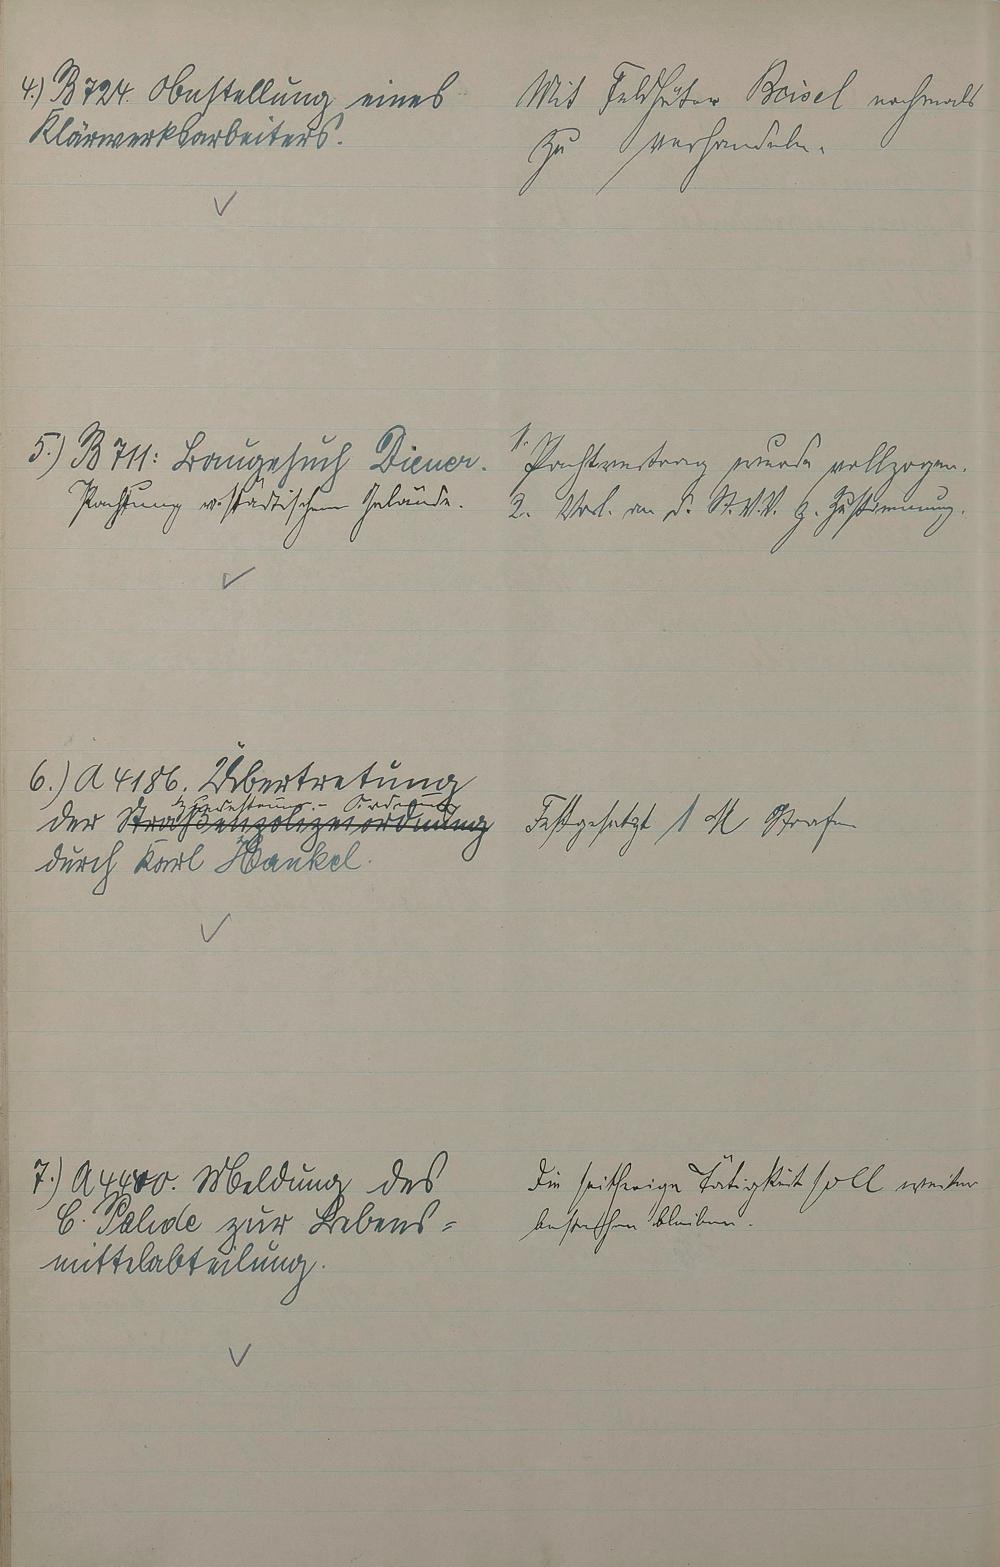 4.) B 724. Anstellung eines
Klärwerksarbeiters.
Mit Feldhüter Beisel nochmals
zu verhandeln.
5.) B 711: Baugesuch Diener.
Pachtung v. städtischem Gelände.
1. Pachtvertrag wurde vollzogen.
2. Vorl. an d. St.V.V. z. Zustimmung.
6.) A 4186. Übertretung
der Straßenpolizeiordnung
durch Karl Hankel.
Festgesetzt 1 M Strafe
7.) A 4480. Meldung des
C. zur Lebens-
mittelabteilung.
Die seitherige Tätigkeit soll weiter
bestehen bleiben.